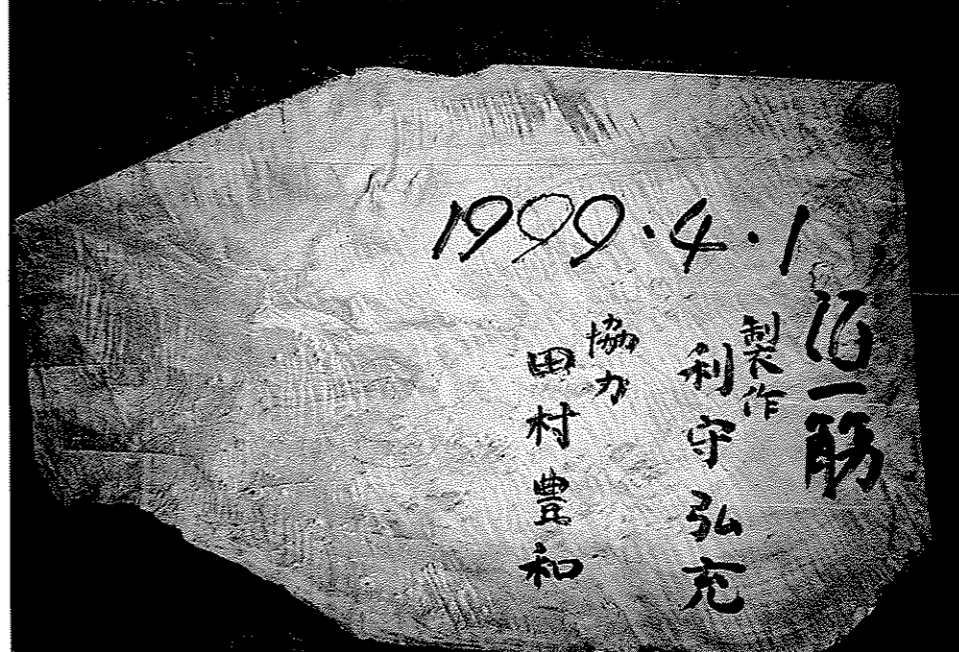 1999・4・1
酒一筋
製作
利守弘充
協力
田村豊和